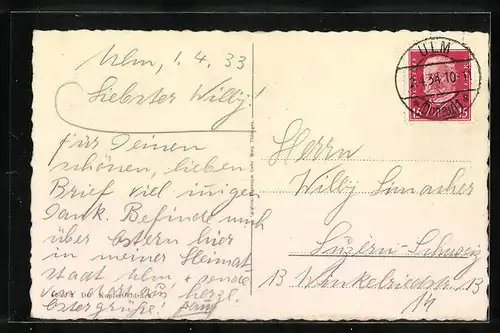 Ulm, 1.4.33
Liebster Willy!
für Deinen
schönen, lieben
Brief viel innigen
Dank. Befinde mich
über Ostern hier
in meiner Heimat-
stadt Ulm + sende
von dort aus herzl.
Ostergrüße!
ULM
.4.34.10-
(Donau)
15 15
Herrn
Willy Smacher
Luzern-Schweiz
13 Winkelriedstr. 13
14